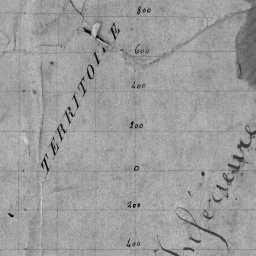 800
600
TERRITOIRE
400
200
0
200
400
Inférieure